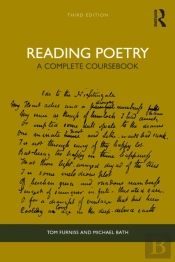 THIRD EDITION
R
READING POETRY
A COMPLETE COURSEBOOK
Ode to the Nightingale
My Heart aches and a painful numbness falls
My sense as though of hemlock I had drunk
Or emptied some dull opiate to the drains
One minute and Lethe-wards had sunk
'Tis not through envy of thy happy lot
But being too happy in thine happiness
That thou light winged dryad of the trees
In some melodious plot
Of beechen green and shadows numberless
Singest of summer in full-throated ease
O for a draught of vintage that has been
Cooling an age in the deep-delved earth
TOM FURNISS AND MICHAEL BATH
B